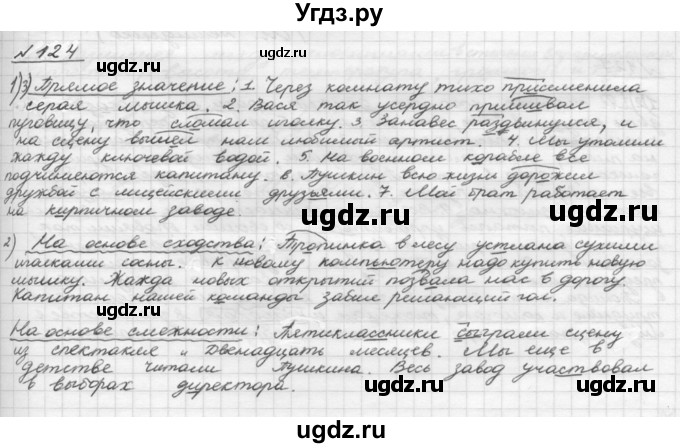 Угдз.ру
№ 124
1)3) Прямое значение: 1. Через комнату тихо присеменила
серая мышка. 2. Вася так усердно пришивал
пуговицу, что сломал иголку. 3. Занавес раздвинулся, и
на сцену вышел нам любимый артист. 4. Мы утолили
жажду ключевой водой. 5. На военном корабле все
подчиняются капитану. 6. Пушкин всю жизнь дорожил
дружбой с лицейскими друзьями. 7. Мой брат работает
на кирпичном заводе.
2) На основе сходства: Тропинка в лесу устлана сухими
иголками сосны. К новому компьютеру надо купить новую
мышку. Жажда новых открытий позвала нас в дорогу.
Капитан нашей команды забил решающий гол.
На основе смежности: Пятиклассники сыграли сцену
из спектакля "Двенадцать месяцев. Мы еще в
детстве читали Пушкина. Весь завод участвовал
в выборах директора.
ugdz.ru
ugdz.ru
ugdz.ru
ugdz.ru
ugdz.ru
ugdz.ru
ugdz.ru
ugdz.ru
ugdz.ru
ugdz.ru